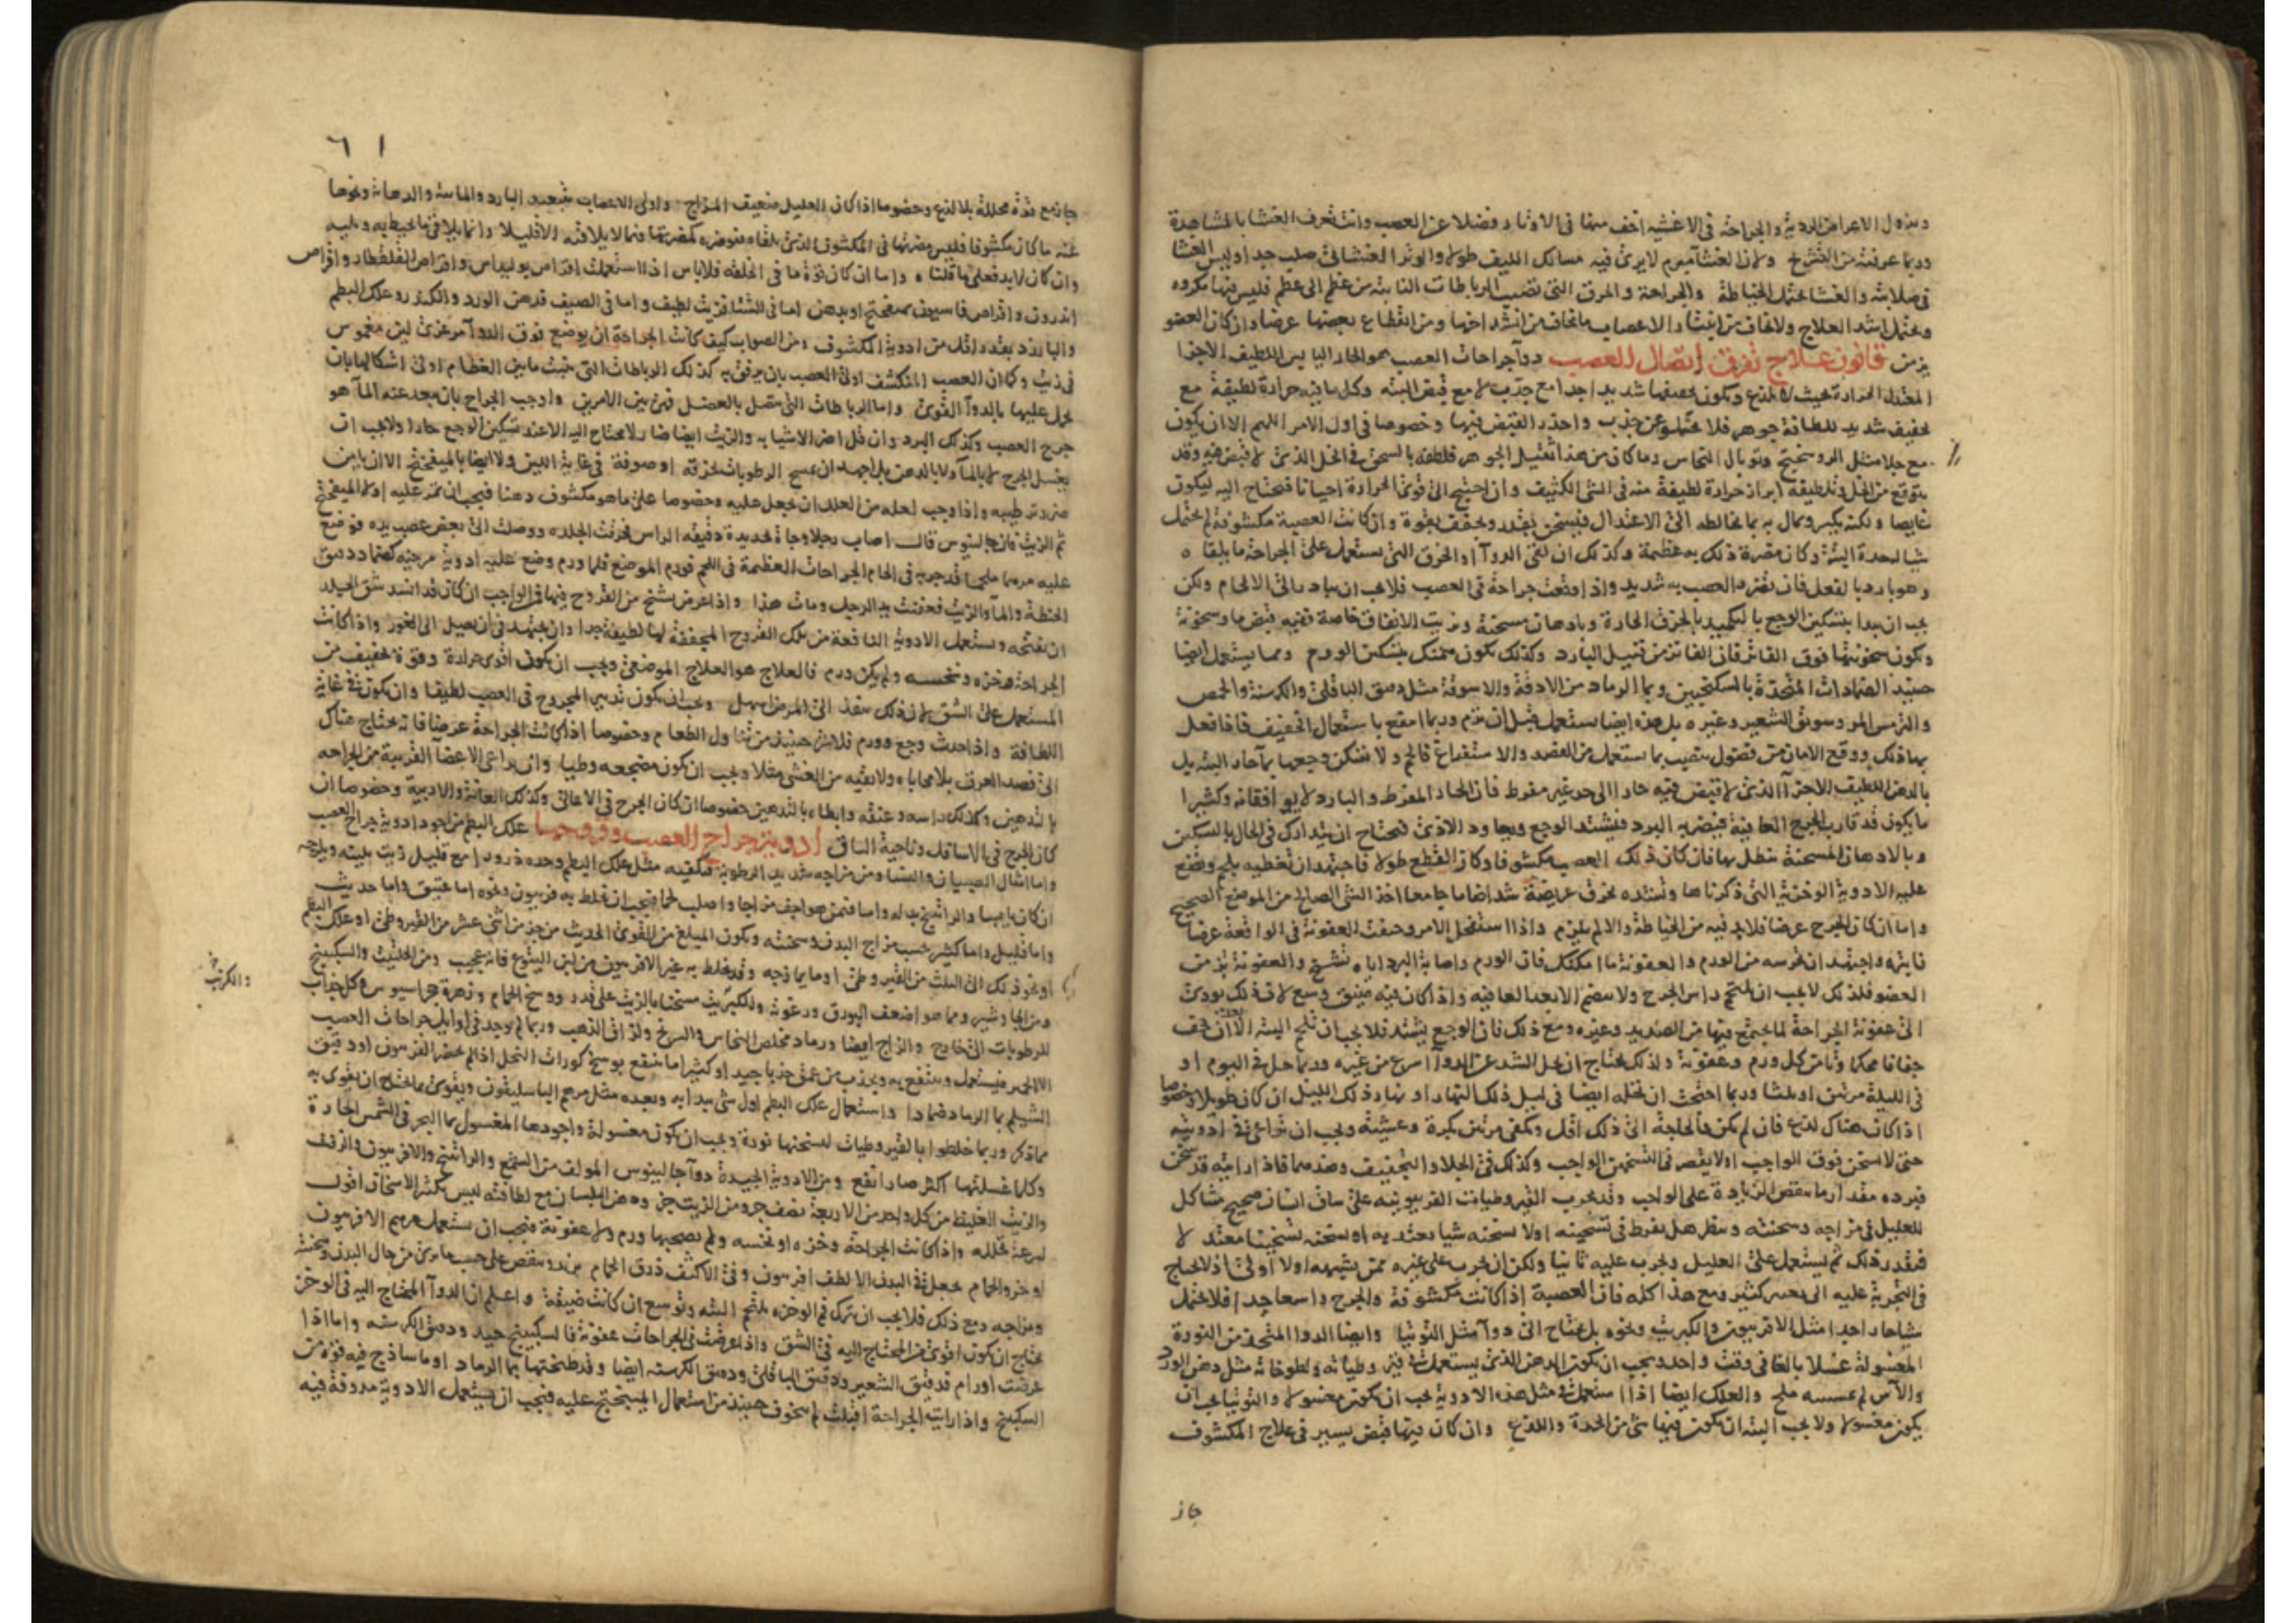 وتزول الاعراض الردية والجراحة في الاغشيه اخف منها في الاوتار وفضلا عن العصب وانت تعرف الغشا بالمشاهدة
وربما عرفته من التشريح ولان الغشا لايرى فيه مسالك الليف طولا والوتر الغشائي صلب جدا وليس الغشا
في صلابته والغشا يحتمل الخياطة والجراحة والمرق التي تصيب الرباطات النابته من عظم الى عظم فليس فيها مكروه
ويحتمل اشد العلاج ولايخاف من الاعصاب مايخاف من انشداخها ومن انقطاع بعضها عرضا وان كان العضو
يزمن قانون علاج تفرق اتصال العصب دوآ جراحات العصب هو الحار اليابس اللطيف الاجزا
المعتدل الحرارة بحيث لايلذع ويكون تجفيفها شديد اجدا مع جذب لا مع قبض البته وكل مافيه حرارة لطيفة مع
تجفيف شديد للطافة جوهر فلا يخلو عن جذب واحذر القبض فيها وخصوصا في اول الامر اللهم الا ان يكون
مع جلا مثل الروسختج وتوبال النحاس وما كان من هذا ثقيل الجوهر فلطفه بالسحق في الخل الذي لا قبض فيه وقد
يتوقع من الخل وتلطيفه ابراز حرارة لطيفة منه في الشي الكثيف وان احتيج الى قوى الحرارة احيانا فيحتاج اليه ليكون
غايصا ولكنه يكسر ويمال به بما يخالطه الى الاعتدال فيسخن بقدر ويجفف بقوة وان كانت العصبة مكشوفة لم يحتمل
شيا لحدة البته وكان مضرة ذلك به عظيمة وكذلك ان لقى الدوآ او الخرق التي يستعمل على الجراحة ما يلقاه
وهو بارد بالفعل فان تضره العصب به شديد واذا وقعت جراحة في العصب فلايجب ان يبادر الى الالحام ولكن
يجب ان يبدا بتسكين الوجع بالتكميد بالخرق الحارة وبادهان مسخنة وزيت الانفاق خاصة ففيه قبض ما وسخونة
وتكون سخونتها فوق الفاتر فان الفاتر من قتيل البارد وكذلك يكون ممكنك بتسكين الورم ومما يستعمل ايضا
حينئذ الضمادات المتخذة بالسكنجبين وبما الرماد من الادقة والاسوقة مثل دقيق الباقلى والكرسنة والحمص
والترمس المر وسويق الشعير وغيره بل هذه ايضا يستعمل قبل ان يرم وربما اقنع باستعمال التجفيف فاذا فعل
بها ذلك ووقع الامان من فضول ينصب بما استعمل من الفصد والاستفراغ فالحم ولا تسكن وجعها بمآ حار البته بل
بالدهن اللطيف الاجزا الذي لا قبض فيه حارا الى حد غير مفرط فان الحار المفرط والبارد لا يوافقانه وكثيرا
ما يكون قد قارب الجرح العافية فيضربه البرد فيشتد الوجع ويعاود الاذى فيحتاج ان يتدارك في الحال بالتسكين
وبالادهان المسخنة ينطل بها فان كان ذلك العصب مكشوفا وكان القطع طولا فاجتهد ان تغطيه بلحم وتضع
عليه الادوية الوخزية التي ذكرناها وتشده بخرق عريضة شدا ضاما جامعا اخذ الشي الصالح من الموضع الصحيح
واما ان كان الجرح عرضا فلابد فيه من الخياطة والا لم يلتزم واذا استفحل الامر وخفت العفونة في الواقعة عرضا
فابتره واجتهد ان تحرسه من الورم والعفونة ما امكنك فان الورم واصابة البرد اياه تشنج والعفونة تزمن
العضو فلذلك لايجب ان يلتحم راس الجرح ولا ينضم الا بعد العافيه واذا كان فيه ضيق وسع لان ذلك يودى
الى عفونة الجراحة لما يجتمع فيها من الصديد وغيره ومع ذلك فان الوجع يشتد فلايجب ان تلحم البته الا ان يجف
جفافا محكما وتامن كل ورم وعفونة ولذلك يحتاج ان يحل الشد عن الدوآ اسرع من غيره وربما حل في اليوم او
في الليلة مرتين او ثلثا وربما احتجت ان تحله ايضا في ليل ذلك النهار او نهار ذلك الليل ان كان طويلا وخصوصا
اذا كان هناك لذع فان لم يكن فالحاجة الى ذلك اقل ويكفي مرتين بكرة وعشية ويجب ان تراعى في ادويته
حتى لا تسخن فوق الواجب او لايقصر في التسخين الواجب وكذلك في الجلا والتجفيف وضدهما فاذا رايته قد سخن
فبرده مقدار ما ينقص الزيادة على الواجب وقد يجرب القيروطيات الفربيونيه على ساق انسان صحيح مشاكل
للعليل في مزاجه وسحنته وينظر هل يفرط في تسخينه اولا تسخنه شيا يعتد به او تسخنه تسخينا معتدلا
فيقدر ذلك ثم ليستعمل على العليل ويجرب عليه ثانيا ولكن ان يجرب على غيره ممن يشبهه اولا اولى اذ لايحتاج
في التجربة عليه الى تغيير كثير ومع هذا كله فان العصبة اذا كانت مكشوفة والجرح واسعا جدا فلا يحتمل
شيا حارا جدا مثل الافربيون والكبريت ونحوه بل يحتاج الى دوآ مثل التوتيا وايضا الدوا المتخذ من النورة
المغسولة غسلا بالغا في وقت واحد ويجب ان يكون الدهن الذي يستعمل في قيروطياته ولطوخاته مثل دهن الورد
والآس لم يمسسه ملح والعلك ايضا اذا استعمل في مثل هذه الادوية يجب ان يكون مغسولا والتوتيا يجب ان
يكون مغسولا ولايجب البته ان يكون فيها شي من الحدة واللذع وان كان فيها قبض يسير في علاج المكشوف
جاز
٦١
جاز مع قوة محللة بلا لذع وخصوصا اذا كان العليل ضعيف المزاج واولى الاعصاب بتبعيد البارد والماسه والدهانه ونحوها
عنه ما كان مكشوفا فليس مضرتها في المكشوف الذي يلقاه فتوضره كمضرتها فيما لا يلاقيه الا قليلا وانما يلاقي ما يحيط به ويليه
وان كان لابد فعلى ما قلنا واما ان كان قوة ما في الخلقه فلاباس اذا استعملت اقراص بوليداس واقراص القلقطار واقراص
اندرون واقراص فاسيون بميفختج او بدهن اما في الشتا فزيت لطيف واما في الصيف فدهن الورد والكندر وعلك البطم
والبارزد بقدر اقل من ادوية المكشوف ومن الصواب كيف كانت الجراحة ان يوضع فوق الدوآ مرعزى لين مغموس
في زيت وكما ان العصب المنكشف اولى العصب بان يرفق به كذلك الرباطات التي تنبت ما بين العظام اولى اشكالها بان
يحمل عليها بالدوآ القوى واما الرباطات التي تتصل بالعضل فهي بين الامرين واوجب الجراح بان يبعد عنه المآ هو
جرح العصب وكذلك البرد وان قل اضر الاشيا به والزيت ايضا ضار لا يحتاج اليه الا عند تسكين الوجع حارا ولايجب ان
يغسل الجرح لا بالمآ ولا بالدهن بل اجهد ان يمسح الرطوبات بخرقه او صوفة في غاية اللين ولا ايضا بالميفختج الا ان يامن
ضرر ترطيبه واذا وجب لعلة من العلل ان يجعل عليه وخصوصا على ما هو مكشوف دهنا فيجب ان تمر عليه اولا الميفختج
ثم الزيت فان جالينوس قال اصاب رجلا وجاة بحديدة دقيقه الراس نخزت الجلده ووصلت الى بعض عصب يده فوضع
عليه مرهما ملحما قد جربه في الحام الجراحات العظيمة في اللحم فورم الموضع فلما ورم وضع عليه ادوية مرخيه كضماد دقيق
الحنطة والمآ والزيت فعفنت يد الرجل ومات هذا واذا عرض تشنج من القروح فيها فالواجب ان كان قد انسد شق الجلد
ان يفتحه ويستعمل الادوية النافعة من تلك القروح المجففة لها لطيفة جدا وان يجتهد في ان يصل الى الغور واذا كانت
الجراحة وخزه ونخسه ولم يكن ورم فالعلاج هو العلاج الموضعي ويجب ان يكون اقوى حرارة وقوة تجفيف من
المستعمل على الشق لان ذلك ينفذ الى المرض اسهل ويجب ان يكون تدبير المجروح في العصب لطيفا وان يكون في غاية
اللطافة واذا حدث وجع وورم فلابد حينئذ من تناول الطعام وخصوصا اذا كانت الجراحة عرضا فانه يحتاج هناك
الى فصد العرق بلا محاباة ولا تقيه من الغشى مثلا ويجب ان يكون مضجعه وطيا وان يراعى الاعضا القريبة من الجراحه
بالتدهين وكذلك راسه وعنقه وابطاه بالتدهين خصوصا ان كان الجرح في الاعالى وكذلك العانة والاربية وخصوصا ان
كان الجرح في الاسافل وناحية الساق ادوية جراح العصب وقروحها علك البطم من اجود ادوية جراح العصب
واما امثال الصبيان والنسا ومن مزاجه شديد الرطوبة فيكفيه مثل علك البطم وحده ذرورا مع قليل زيت يلينه ويلزجه
ان كان يابسا والراتينج بدله واما فيمن هو اجف مزاجا واصلب لحما فيجب ان يخلط به فربيون ونحوه اما عتيق واما حديث
واما قليل واما كثير بحسب مزاج البدن وسحنته ويكون المبلغ من القوى الحديث من جزء من اثنى عشر من القيروطى او علك البطم
او نحو ذلك الى الثلث من القيروطى او ما يمازجه وقد يخلط به غير الافربيون من لبن اليتوع فانه عجيب ومن الحلتيت والسكبينج
ومن الجاوشير ومما هو اضعف البورق ورغوته والكبريت مسخنا بالزيت على قدر ووسخ الحمام وزهرة حجر اسيوس وكل جذاب
للرطوبات الى خارج والزاج ايضا ورماد مخلص النحاس والزرنيخ ولزاق الذهب وربما لم يوجد في اوايل جراحات العصب
الا الخمير فيستعمل وينتفع به ويجذب من عمق جذبا جيد او كثيرا ما ينتفع بوسخ كورات النحل اذا لم يحضر الفربيون او دقيق
الشيلم بما الرماد ضمادا واستعمال علك البطم اول شي يبدا به وبعده مثل مرهم الباسليقون ويقوى بما يحتاج ان يقوى به
مما ذكر وربما خلطوا بالقيروطيات لسخنتها نورة ويجب ان يكون مغسولة واجودها المغسول بما البحر في الشمس الحارة
وكلما غسلتها اكثر صار انفع ومن الادوية الجيدة دوآ جالينوس المولف من الشمع والراتينج والافربيون والزفت
والزيت الغليظ من كل واحد من الاربعة نصف جزو من الزيت جزء ودهن البلسان مع لطافته ليس بكثير الاسخان اقول
لسرعة تحلله واذا كانت الجراحة وخزه او نخسه ولم يصحبها ورم ولا عفونة فيجب ان يستعمل مرهم الافربيون
او خرو الحمام يجعل في البدن الالطف افربيون وفي الاكثف ذرق الحمام يزيد وينقص على حسب ما يرى من حال البدن وسحنته
ومزاجه ومع ذلك فلايجب ان يترك فم الوخزه يلتحم البته وتوسيع ان كانت ضيقة واعلم ان الدوآ المحتاج اليه في الوخز
يحتاج ان يكون اقوى من المحتاج اليه في الشق واذا عرضت في الجراحات عفونة فالسكنجبين جيد ودقيق الكرسنه واما اذا
عرضت اورام فدقيق الشعير ودقيق الباقلى ودقيق الكرسنه ايضا وقد طبختها بما الرماد او ما ساذج فيه قوة من
السكبينج واذا رايت الجراحة اقبلت لم يتخوف حينئذ من استعمال الميبختج عليه فيجب ان يستعمل الادوية مدوفة فيه
والكبريت